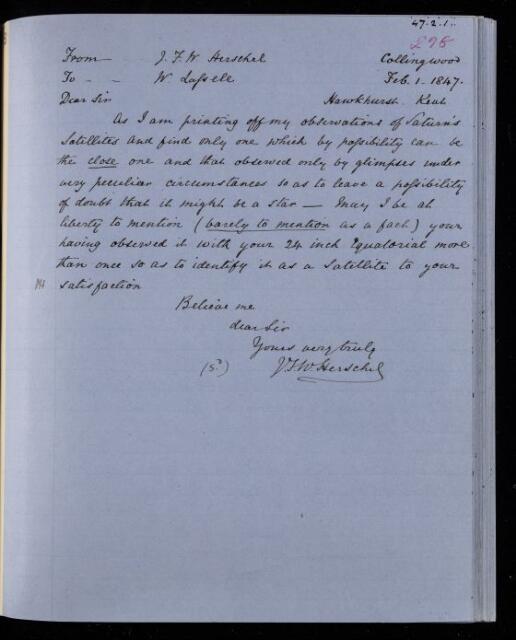 47.2.1.
From — J. F. W Herschel Collingwood
To - - W. Lassell Feb. 1. 1847.
Dear Sir Hawkhurst. Kent
As I am printing off my observations of Saturn's
Satellites and find only one which by possibility can be
the close one and that observed only by glimpses under
very peculiar circumstances so as to leave a possibility
of doubt that it might be a star — may I be at
liberty to mention (barely to mention as a fact) your
having observed it with your 24 inch Equatorial more
than once so as to identify it as a Satellite to your
satisfaction
Believe me
dear Sir
Yours very truly
(S.d) J F W. Herschel